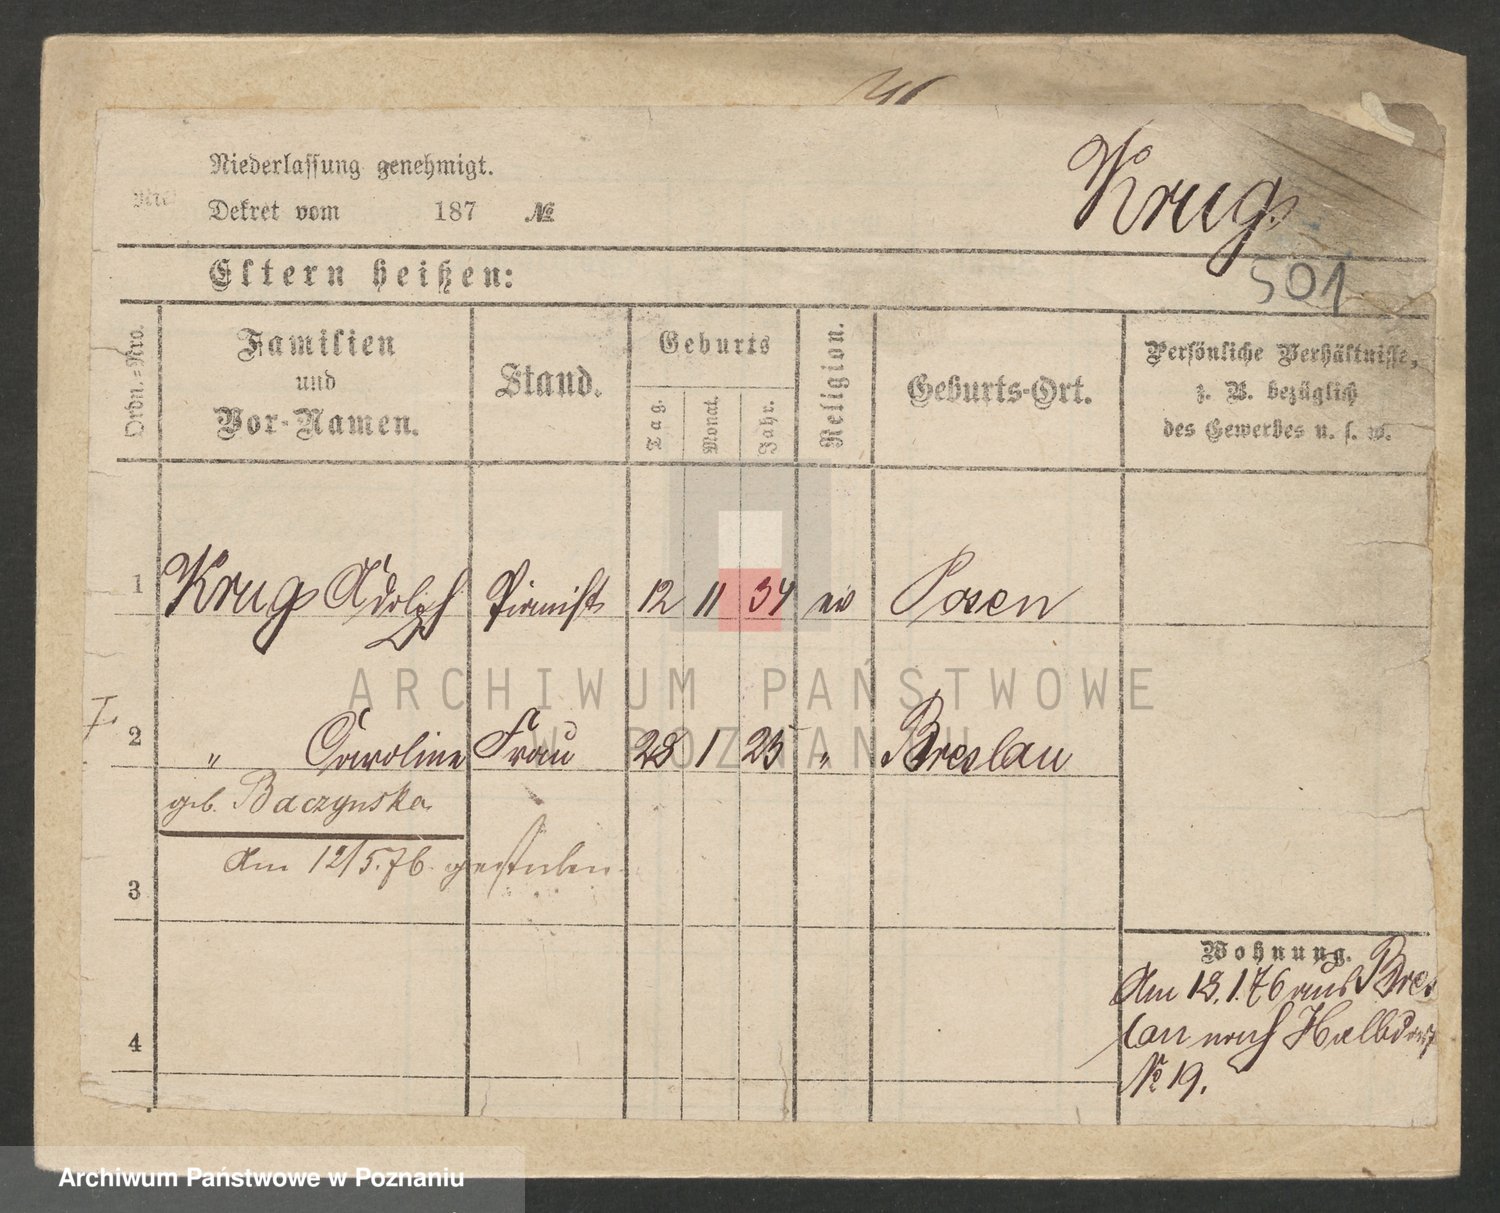 Krug.
Niederlassung genehmigt.
Dekret vom 187 №
501
Eltern heißen:
Ordn.-Nro.
Familien
und
Vor-Namen.
Stand.
Geburts
Tag.
Monat.
Jahr.
Religion.
Geburts-Ort.
Persönliche Verhältnisse,
z. B. bezüglich
des Gewerbes u. s. w.
1 Krug Adolph Pianist 12 11 34 ev Posen
ARCHIWUM PAŃSTWOWE
W POZNANIU
2 " Caroline Frau 28 1 25 " Breslau
geb. Baczynska
Am 12/5.76. gestorben
3
Wohnung.
Am 18.1.76 aus Bres
lau nach Halbdorf
№ 19.
4
Archiwum Państwowe w Poznaniu